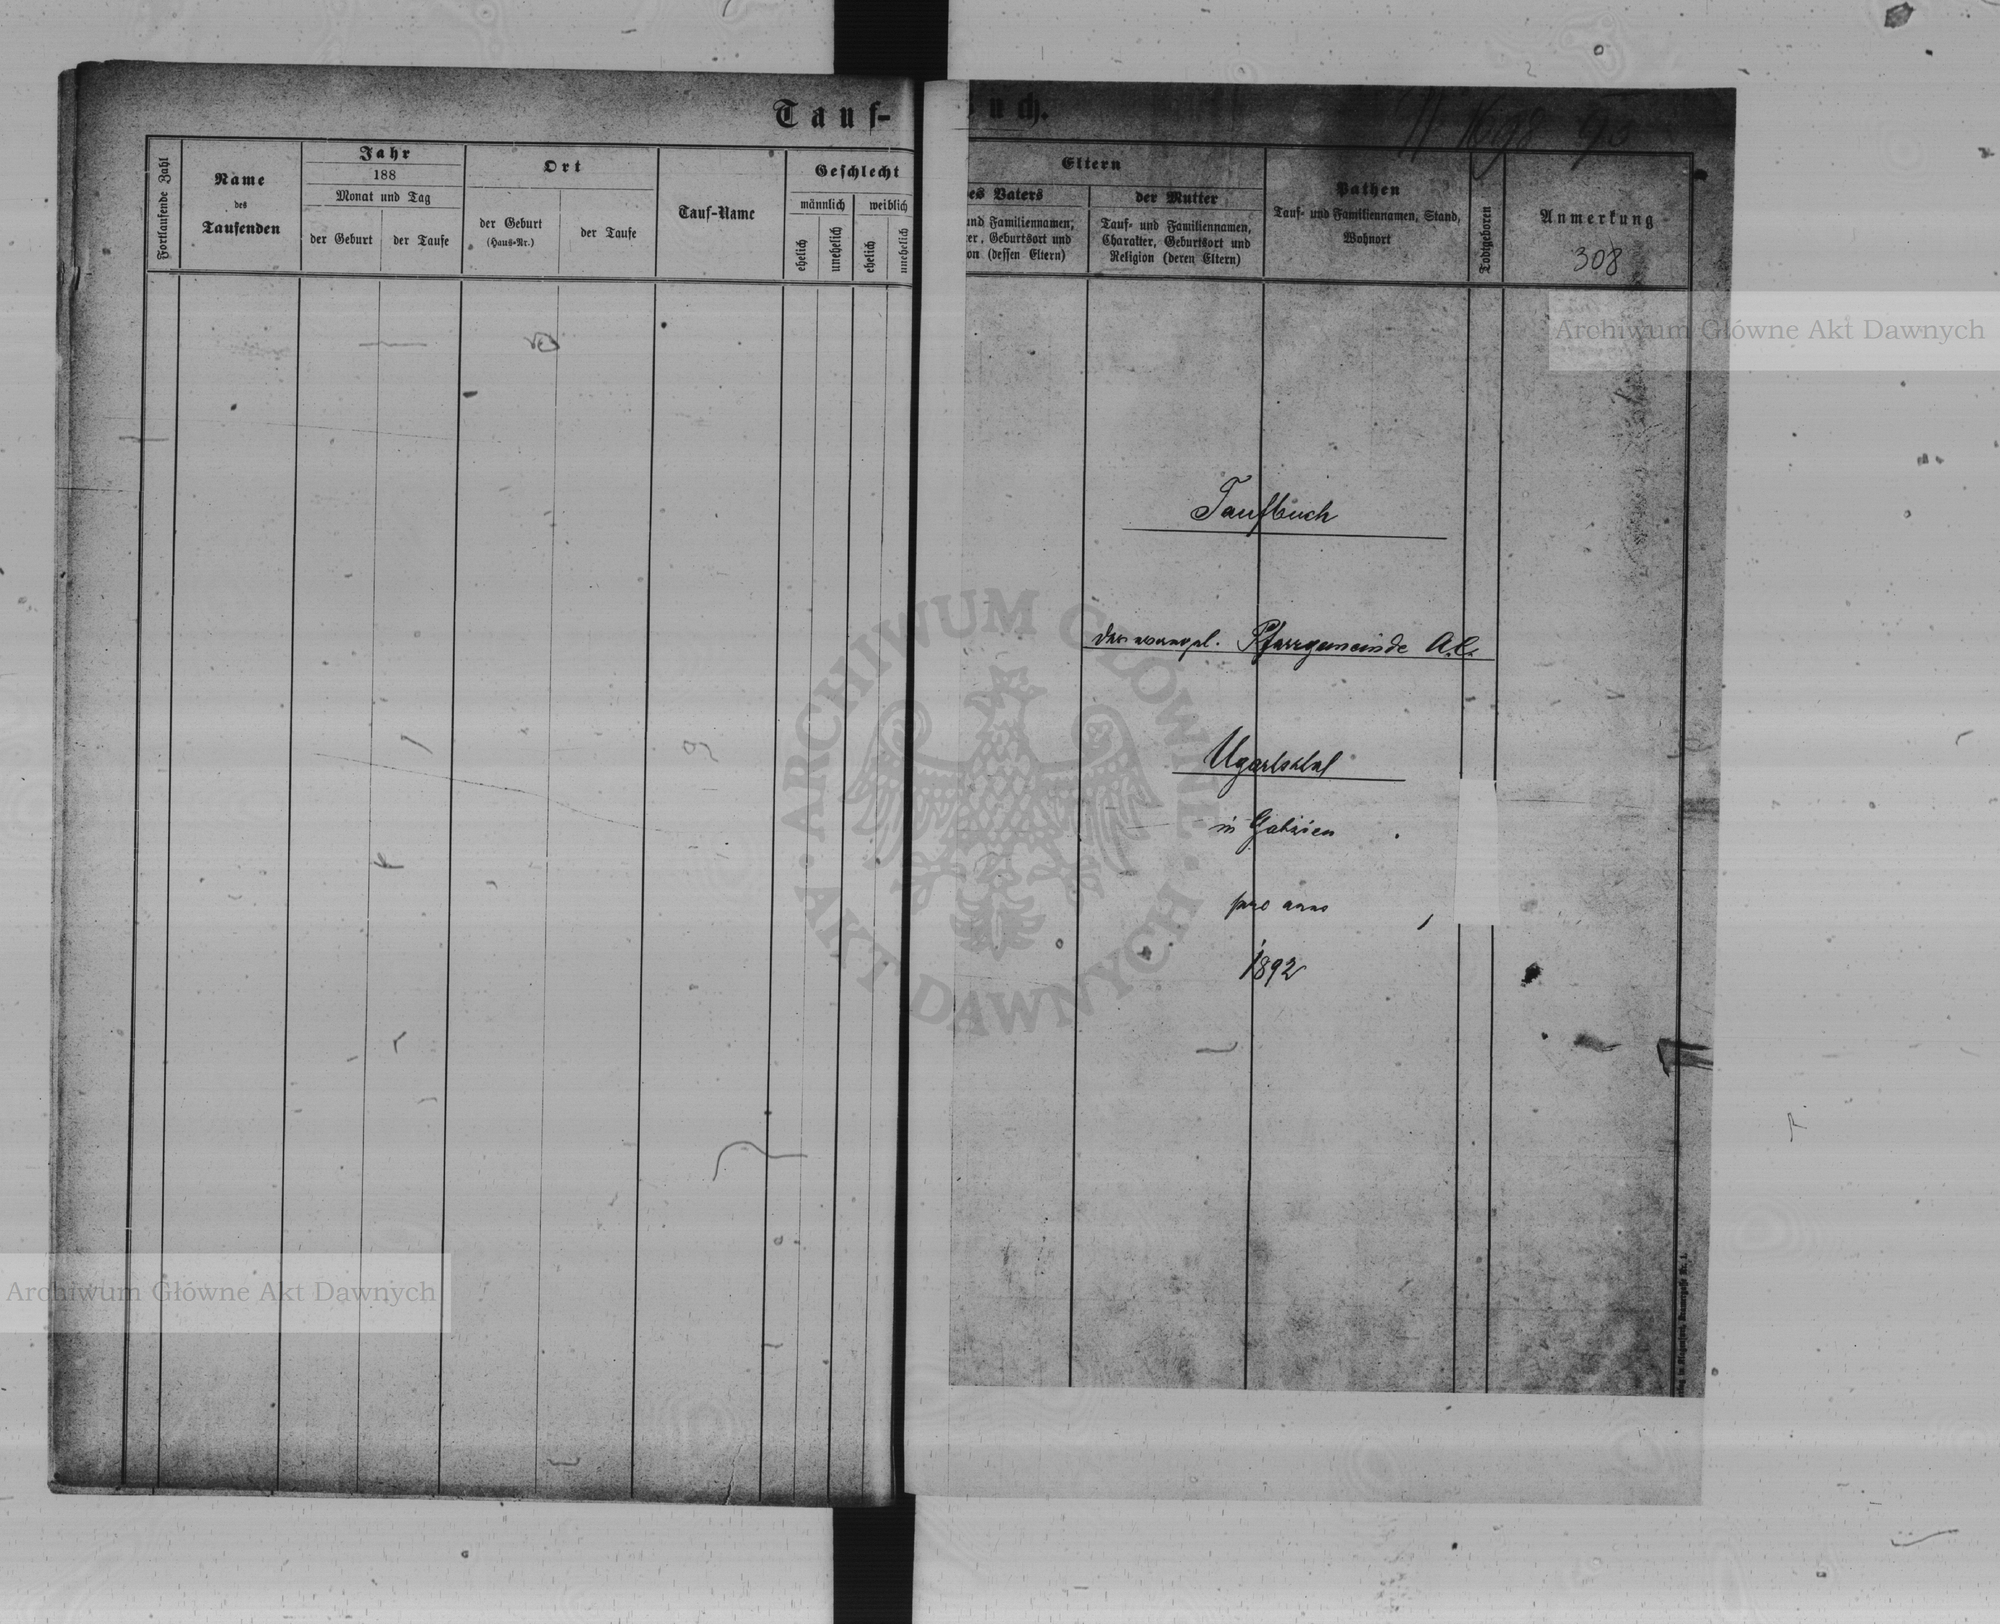 Tauf-
Fortlaufende Zahl
Name
des
Taufenden
Jahr
188
Monat und Tag
der Geburt
der Taufe
Ort
der Geburt
(Haus-Nr.)
der Taufe
Tauf-Name
Geschlecht
männlich
weiblich
ehelich
unehelich
ehelich
unehelich
uch.
Eltern
es Vaters
und Familiennamen,
ter, Geburtsort und
on (dessen Eltern)
der Mutter
Tauf- und Familiennamen,
Charakter, Geburtsort und
Religion (deren Eltern)
Pathen
Tauf- und Familiennamen, Stand,
Wohnort
Todtgeboren
Anmerkung
308
Taufbuch
der evangel. Pfarrgemeinde A.C.
Ugartsthal
in Galizien
pro anno
1892
Archiwum Główne Akt Dawnych
ARCHIWUM GŁÓWNE · AKT DAWNYCH ·
Archiwum Główne Akt Dawnych